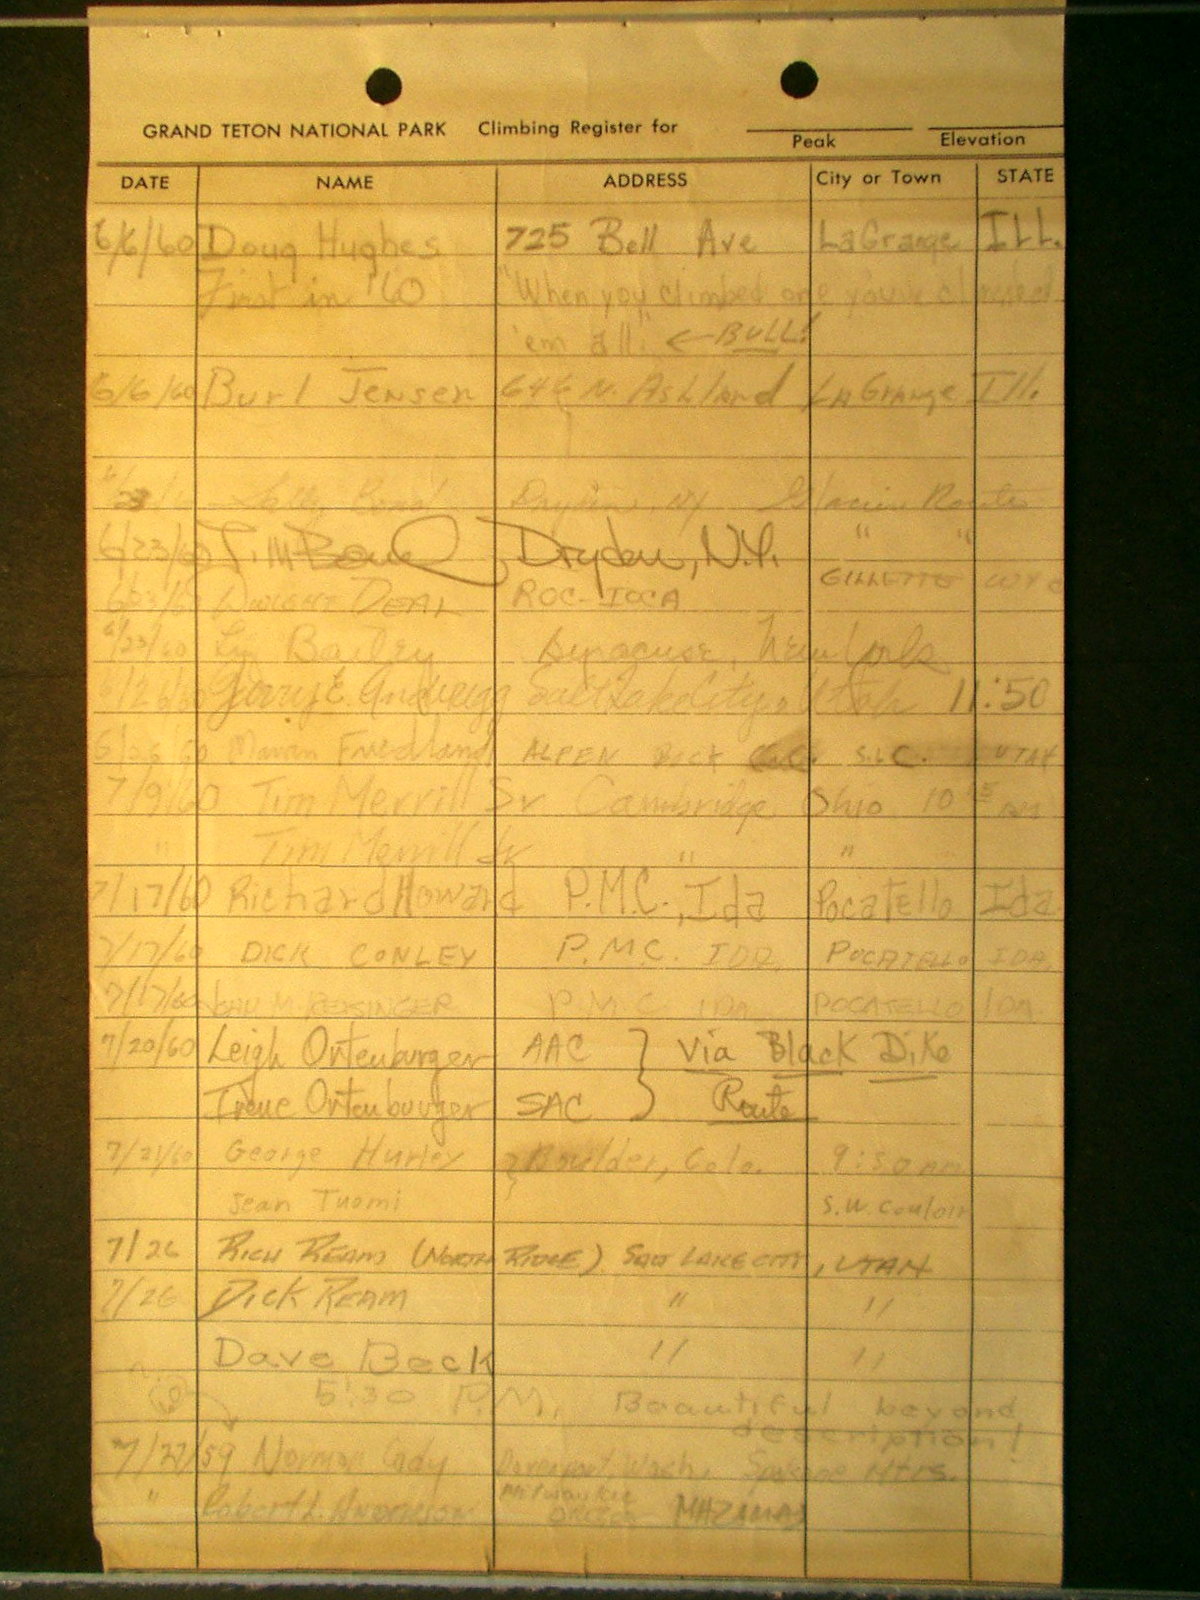 GRAND TETON NATIONAL PARK Climbing Register for
Peak Elevation
DATE NAME ADDRESS City or Town STATE
6/6/60 Doug Hughes 725 Bell Ave LaGrange ILL.
First in '60 "When you climbed one you've climbed
'em all." ←BULL!
6/6/60 Burl Jensen 646 N. Ashland LaGrange Ill.
Dryden, NY Glacier Route
6/23/60 Dryden, N.Y. " "
DWIGHT DEAL ROC-IOCA GILLETTE WYO
6/23/60 Bailey Syracuse, New York
Salt Lake City, Utah 11:50
Friedland ALPEN S.L.C. UTAH
7/9/60 Tim Merrill Sr Cambridge Ohio 10
" Tim Merrill Jr " "
7/17/60 Richard Howard P.M.C., Ida Pocatello Ida
7/17/60 DICK CONLEY P.M.C. IDA. POCATELLO IDA.
7/17/60 REISINGER P.M.C. IDA. POCATELLO IDA.
7/20/60 Leigh Ortenburger AAC } via Black Dike
Irene Ortenburger SAC } Route
7/21/60 George Hurley } Boulder, Colo. 9:30 AM
Jean Tuomi S.W. Couloir
7/26 RICH REAM (NORTH RIDGE) SALT LAKE CITY, UTAH
7/26 DICK REAM " "
Dave Beck " "
5:30 P.M. Beautiful beyond
description!
7/22/59 Norman Cady Davenport, Wash. Spokane Mtrs.
" Robert L. Milwaukie
OREGON MAZAMAS